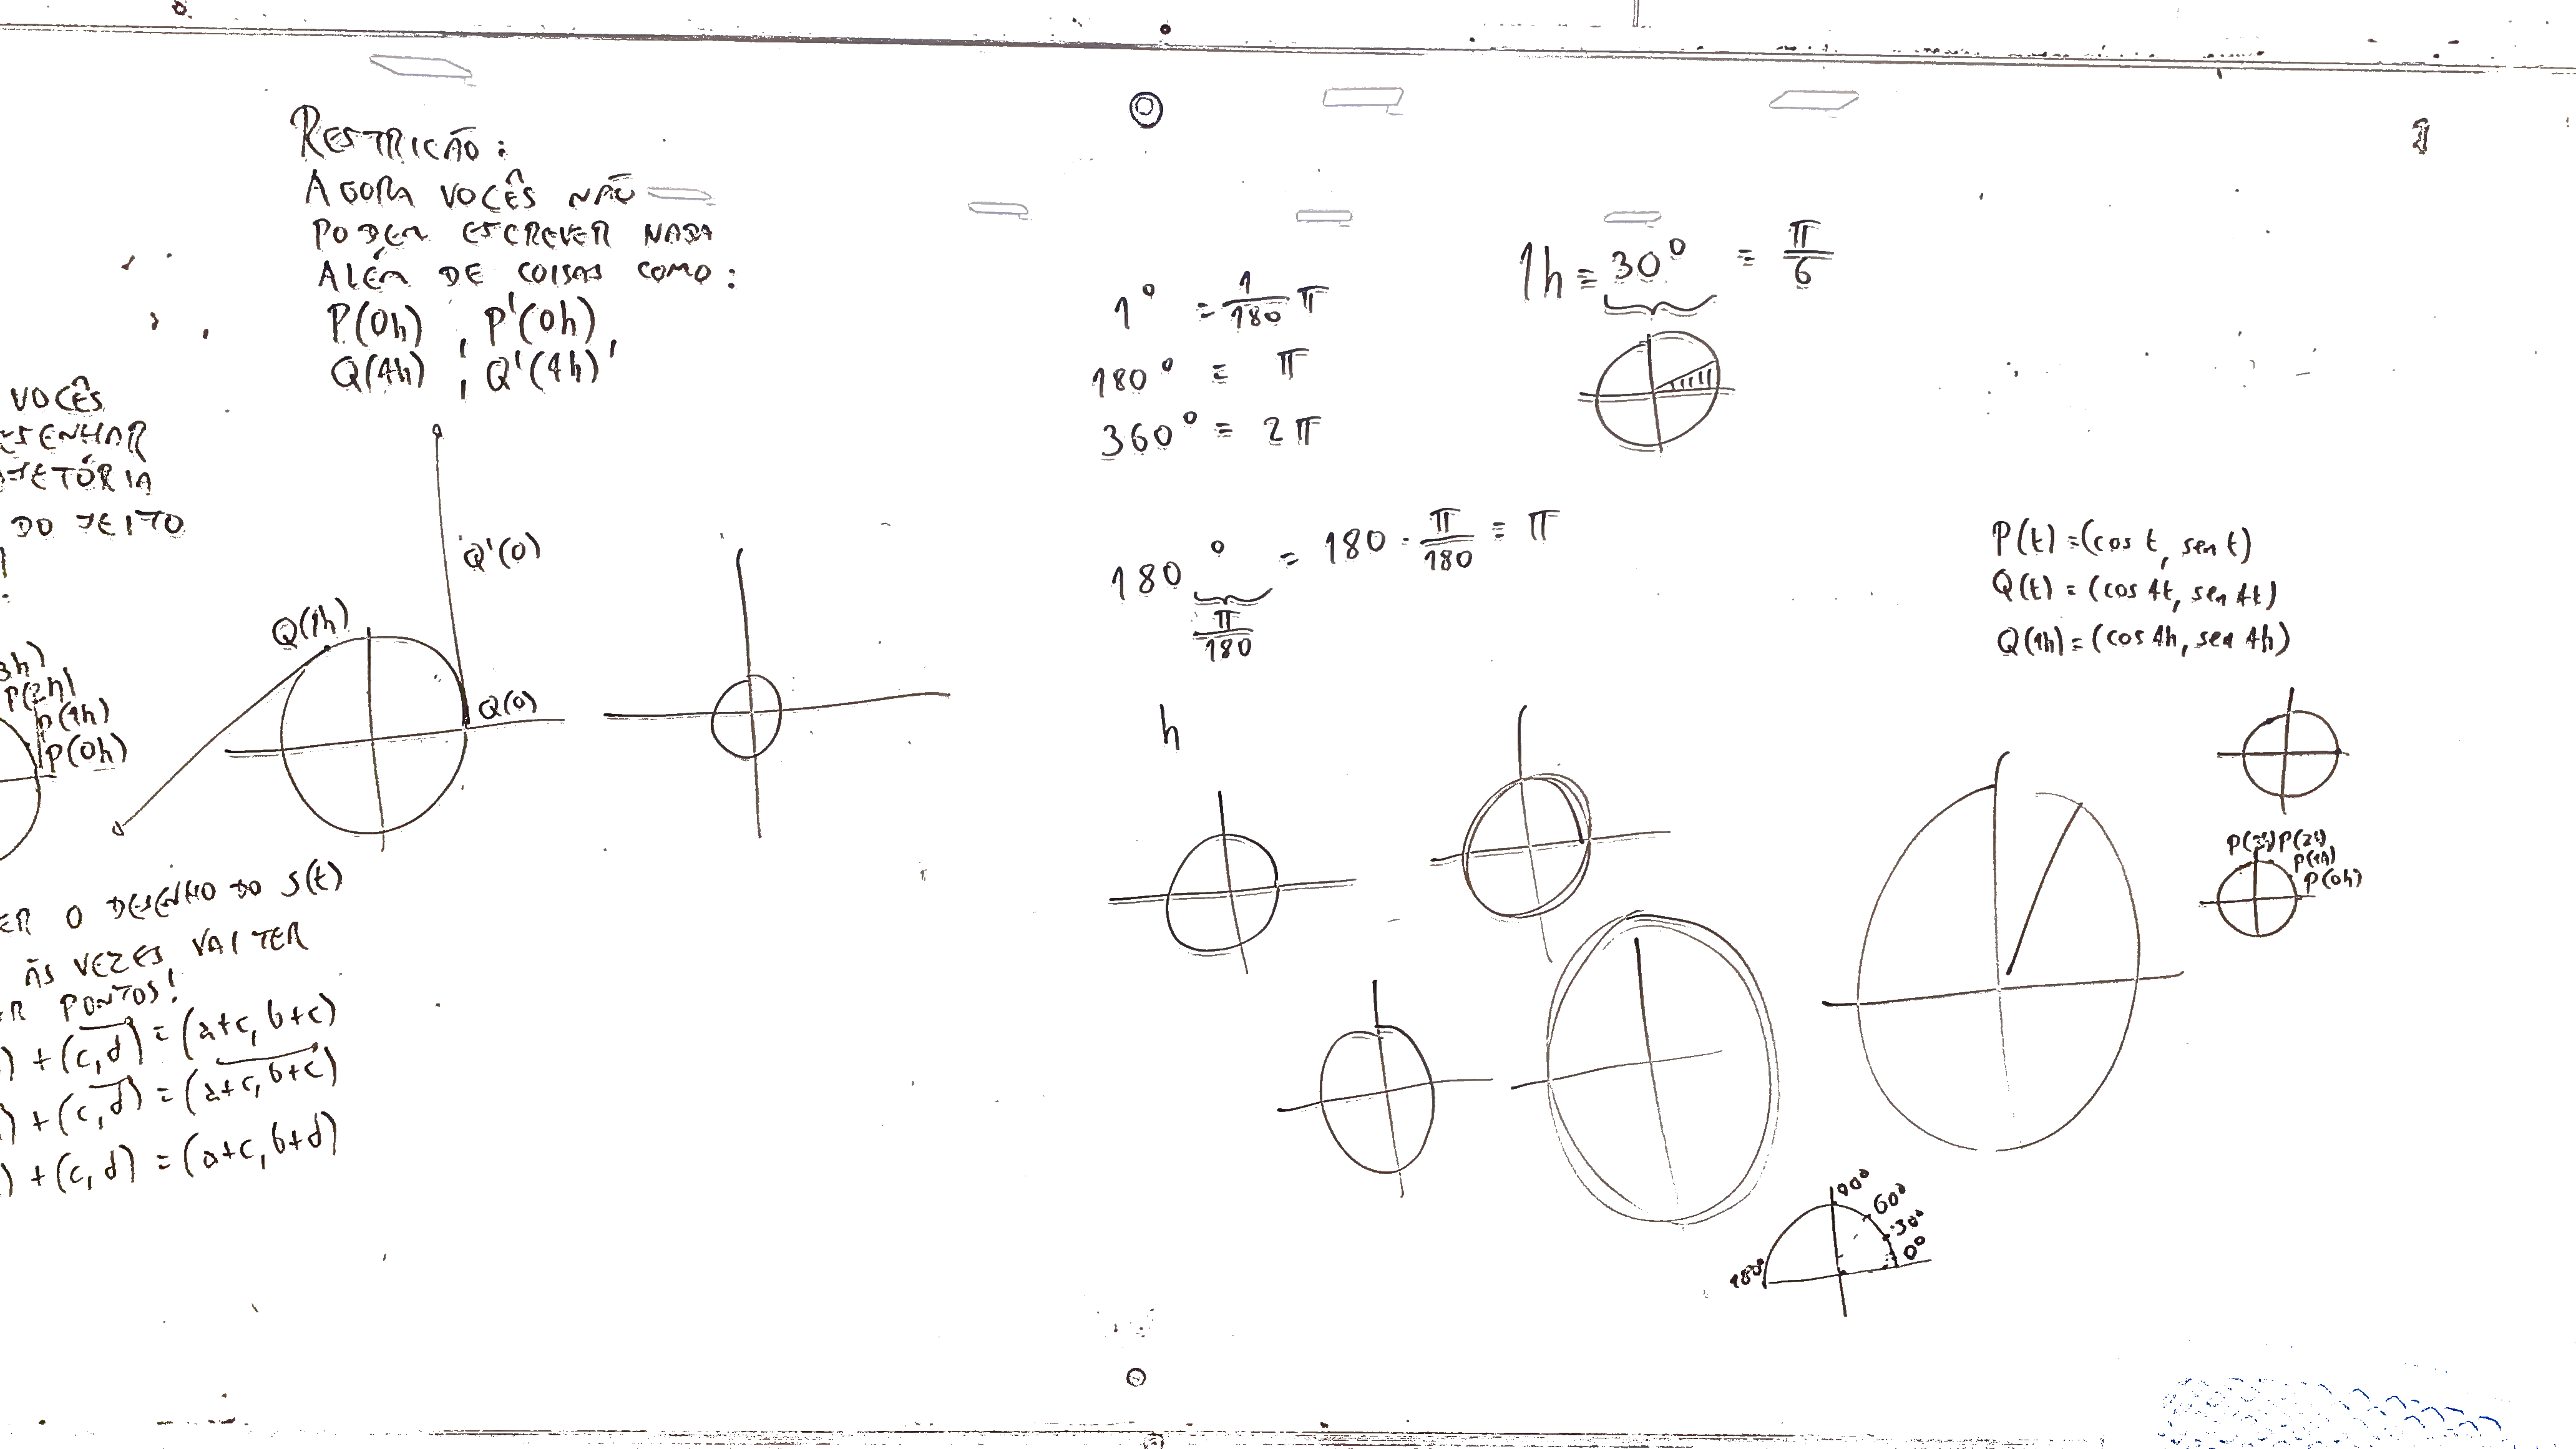 RESTRIÇÃO:
AGORA VOCÊS NÃO
PODEM ESCREVER NADA
ALÉM DE COISAS COMO:
P(0h), P'(0h),
Q(4h), Q'(4h)
VOCÊS
ESENHAR
JETÓRIA
DO JEITO
Q'(0)
Q(1h)
Q(0)
3h)
P(2h)
P(1h)
P(0h)
ER O DESENHO DO S(t)
ÀS VEZES VAI TER
ER PONTOS!
) + (c,d) = (a+c, b+c)
) + (c,d) = (a+c, b+c)
) + (c,d) = (a+c, b+d)
1° = 1/180 π
180° = π
360° = 2π
1h = 30° = π/6
180° = 180 · π/180 = π
π/180
h
P(t) = (cos t, sen t)
Q(t) = (cos 4t, sen 4t)
Q(1h) = (cos 4h, sen 4h)
P(2h)
P(1h)
P(0h)
90°
60°
30°
0°
180°